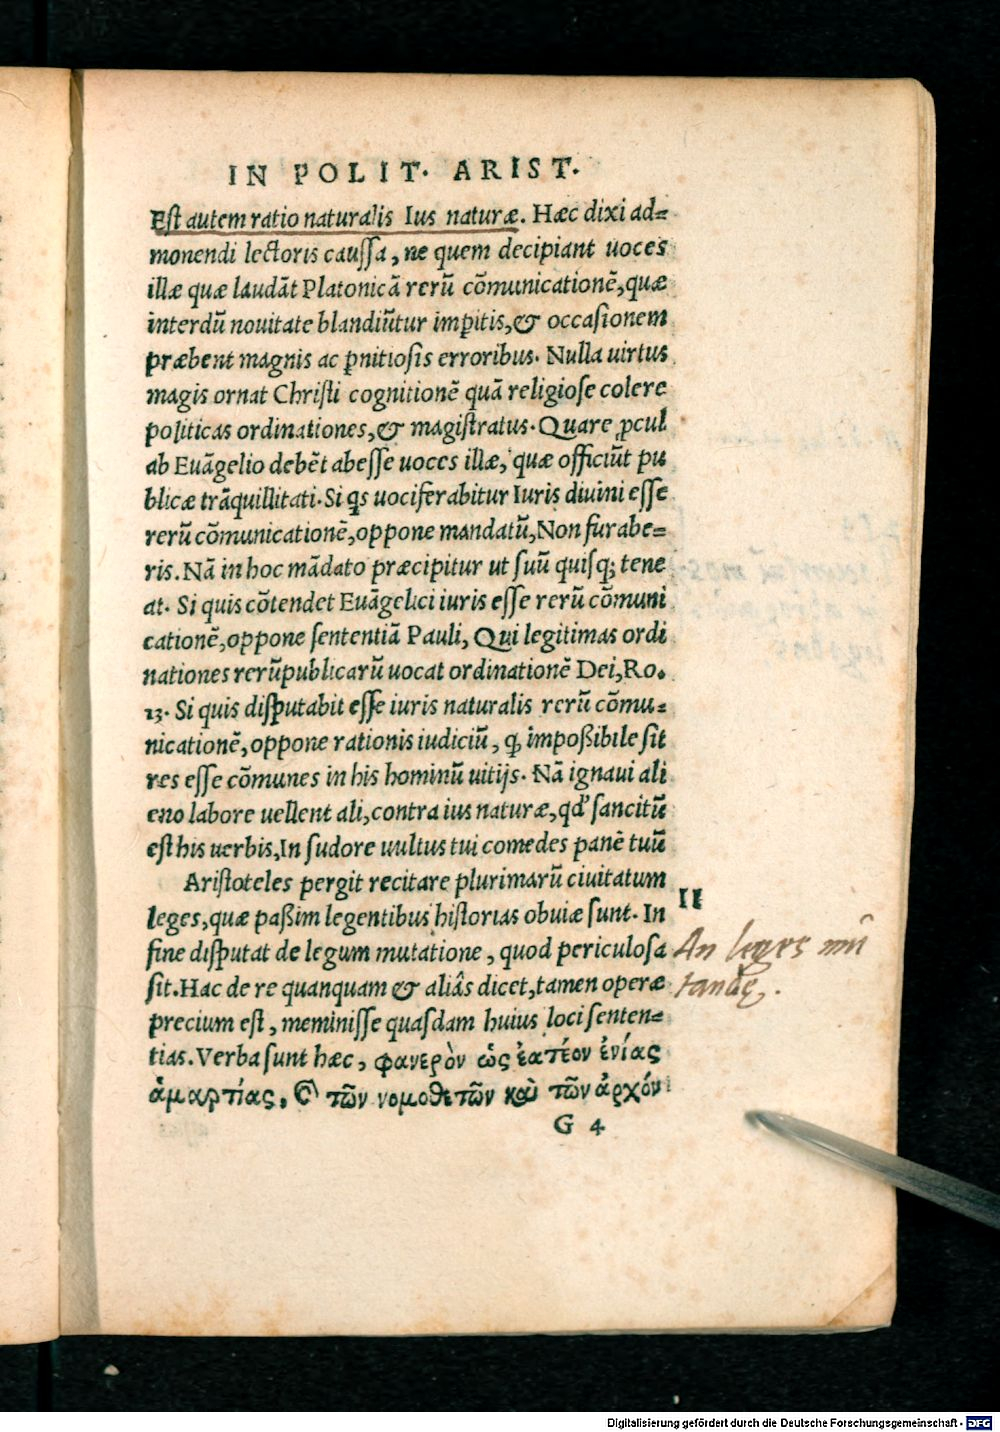 IN POLIT. ARIST.
Est autem ratio naturalis Ius naturæ. Hæc dixi ad=
monendi lectoris caussa, ne quem decipiant uoces
illæ quæ laudãt Platonicã rerũ cõmunicationẽ, quæ
interdũ nouitate blandiũtur imꝑitis, & occasionem
præbent magnis ac ꝑnitiosis erroribus. Nulla uirtus
magis ornat Christi cognitionẽ quã religiose colere
politicas ordinationes, & magistratus. Quare ꝓcul
ab Euãgelio debẽt abesse uoces illæ, quæ officiũt pu
blicæ trãquillitati. Si qͥs uociferabitur Iuris diuini esse
rerũ cõmunicationẽ, oppone mandatũ, Non furabe=
ris. Nã in hoc mãdato præcipitur ut suũ quisqꝫ tene
at. Si quis cõtendet Euãgelici iuris esse rerũ cõmuni
cationẽ, oppone sententiã Pauli, Qui legitimas ordi
nationes rerũpublicarũ uocat ordinationẽ Dei, Ro.
13. Si quis disputabit esse iuris naturalis rerũ cõmu=
nicationẽ, oppone rationis iudiciũ, ꝙ impoßibile sit
res esse cõmunes in his hominũ uitijs. Nã ignaui ali
eno labore uellent ali, contra ius naturæ, qđ sancitũ
est his uerbis, In sudore uultus tui comedes panẽ tuũ
Aristoteles pergit recitare plurimarũ ciuitatum
leges, quæ paßim legentibus historias obuiæ sunt. In
fine disputat de legum mutatione, quod periculosa
sit. Hac de re quanquam & aliâs dicet, tamen operæ
precium est, meminisse quasdam huius loci senten=
tias. Verba sunt hæc, φανερὸν ὡς ἐατέον ἐνίας
ἁμαρτίας, ϗ τῶν νομοθετῶν καὶ τῶν ἀρχόν
G 4
II
An leges mũ
tandę.
Digitalisierung gefördert durch die Deutsche Forschungsgemeinschaft - DFG